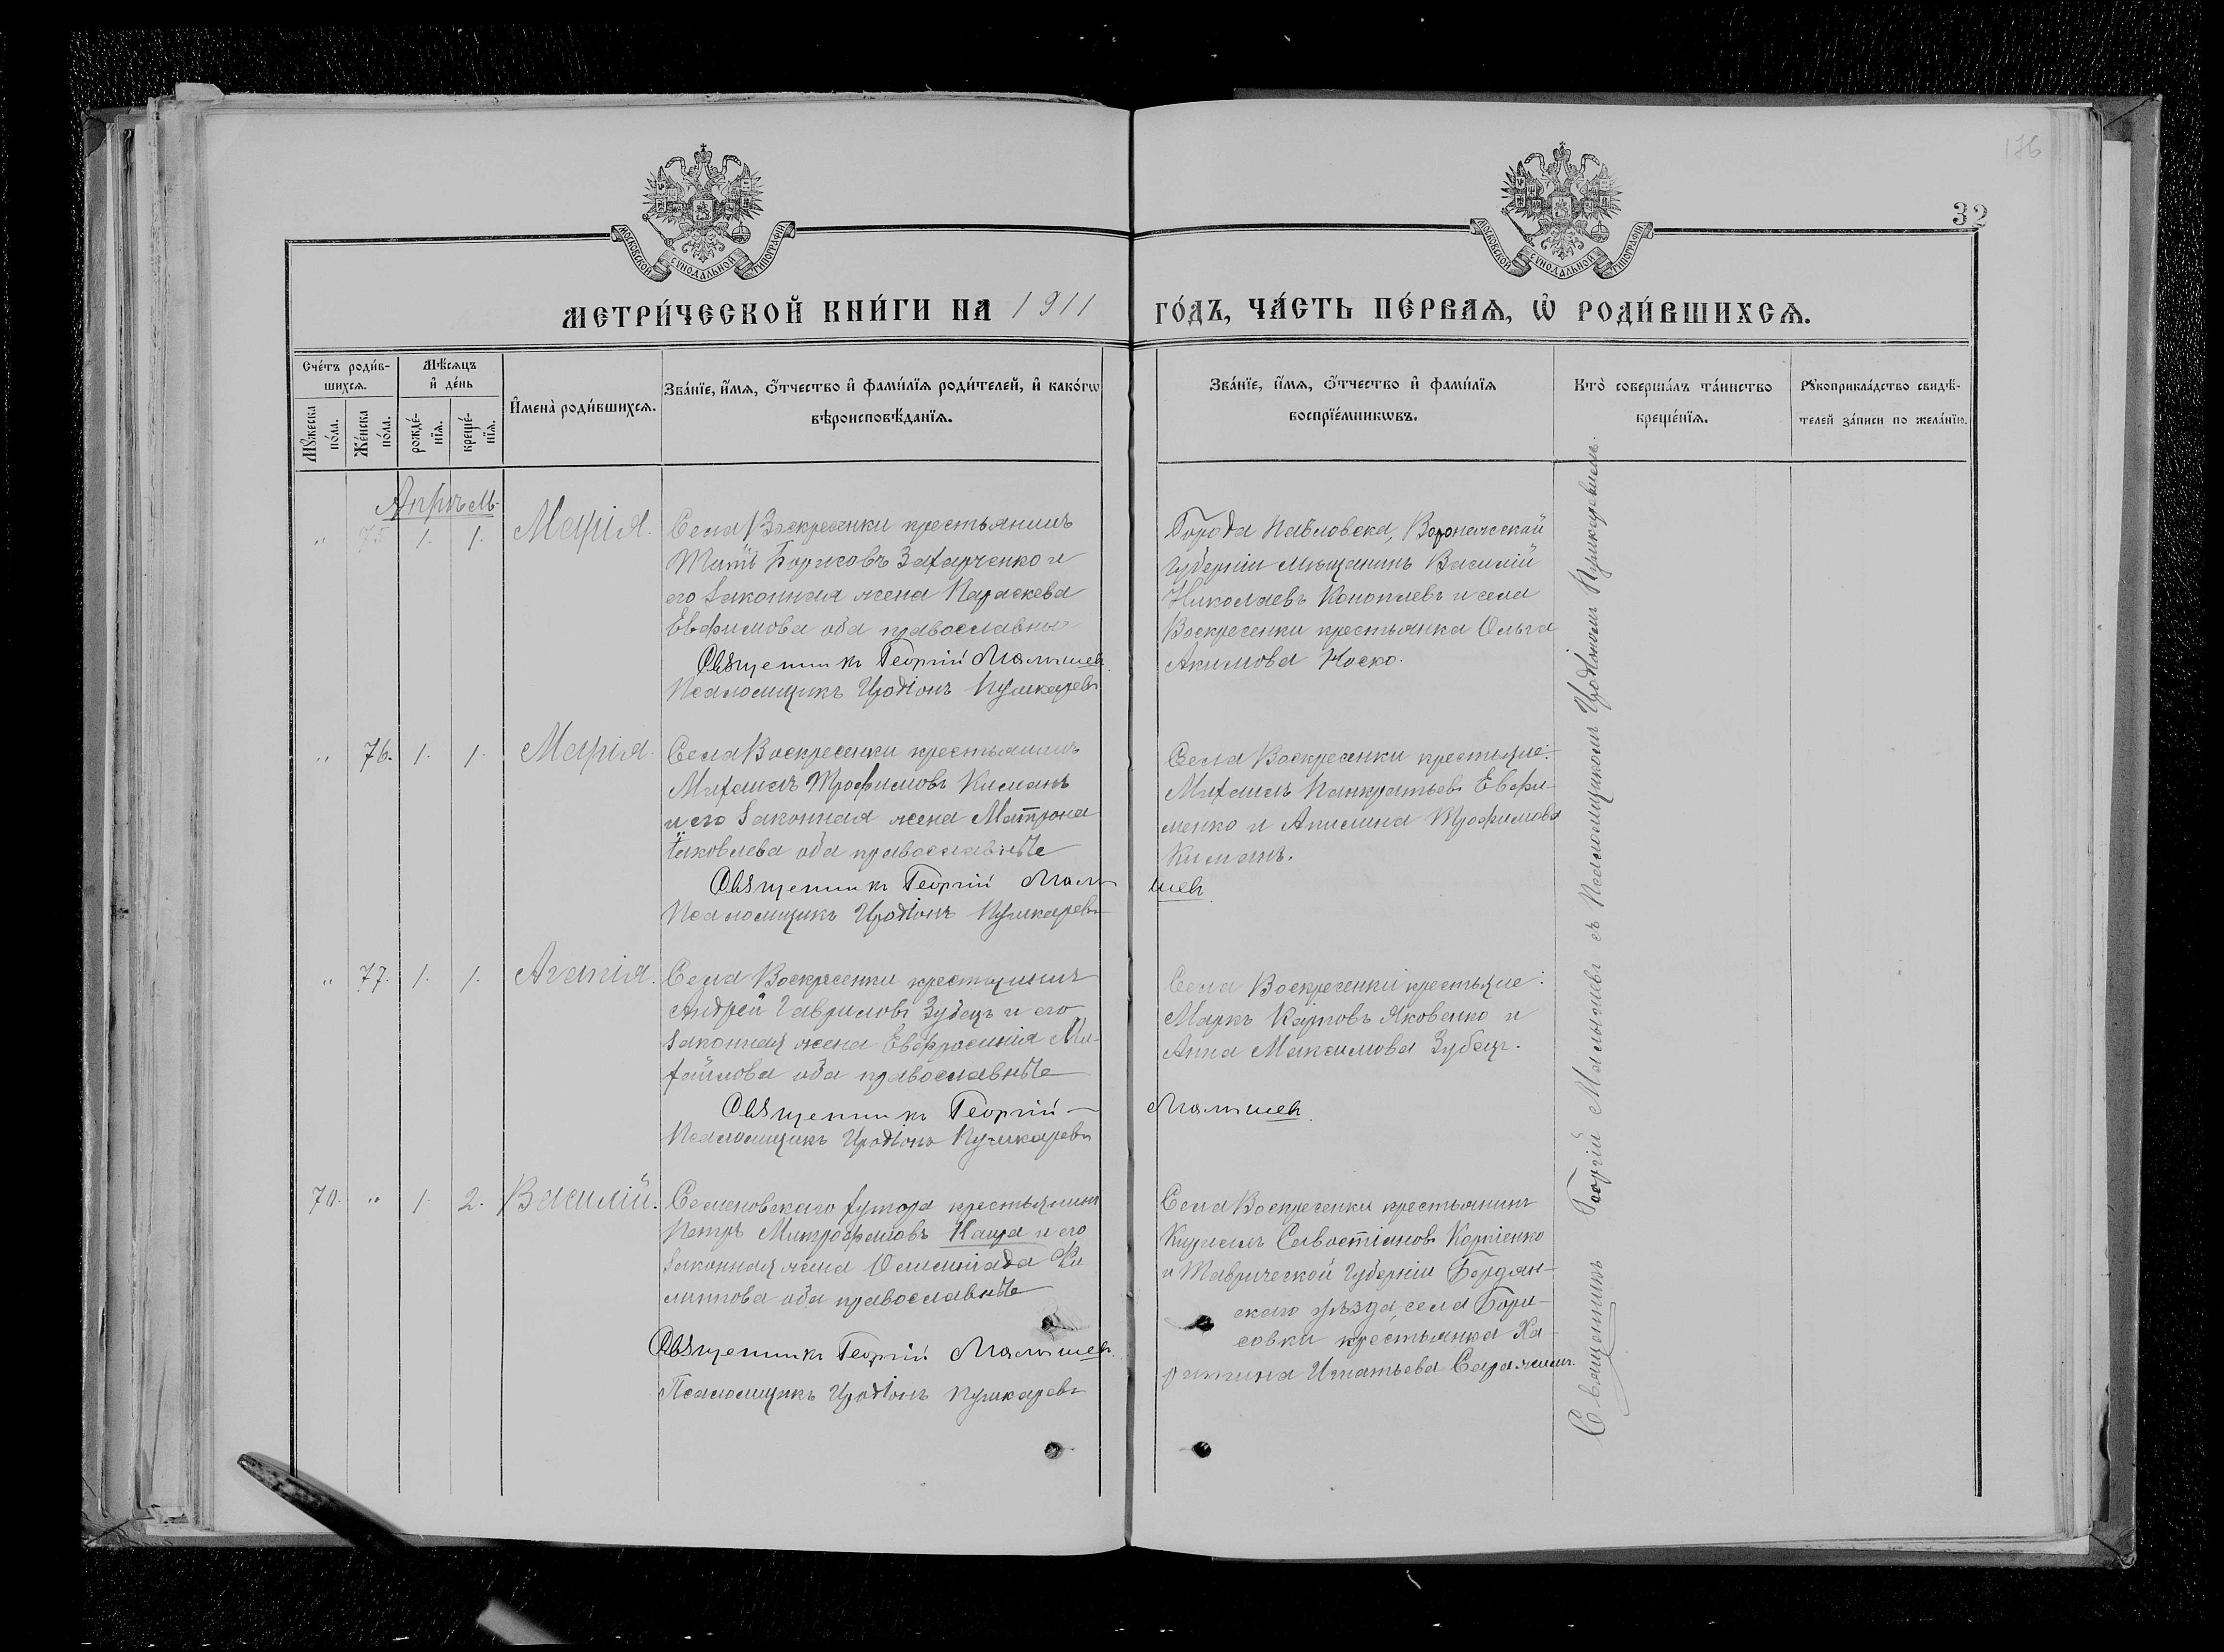 176
32
МОСКОВСКОЙ СѴНОДАЛЬНОЙ ТИПОГРАФІИ
МОСКОВСКОЙ СѴНОДАЛЬНОЙ ТИПОГРАФІИ
МЕТРИ́ЧЕСКОЙ КНИ́ГИ НА 1911 ГО́ДЪ, ЧА́СТЬ ПЕ́РВАѦ, Ѡ҆ РОДИ́ВШИХСѦ.
Сче́тъ роди́в-
шихсѧ.
Мѣ́сѧцъ
и҆ де́нь
Мꙋ́жеска
по́ла.
Же́нска
по́ла.
рожде́-
нїѧ.
креще́-
нїѧ.
И҆мена̀ роди́вшихсѧ.
Зва́нїе, и҆́мѧ, ѻ҆́тчество и҆ фами́лїѧ роди́телей, и҆ како́гѡ
вѣроисповѣ́данїѧ.
Зва́нїе, и҆́мѧ, ѻ҆́тчество и҆ фами́лїѧ
воспрїе́мникѡвъ.
Кто̀ соверша́лъ та́инство
креще́нїѧ.
Рꙋкоприкла́дство свидѣ́-
телей за́писи по жела́нїю.
Апрѣль
" 75 1. 1. Марія.
Села Воскресенки крестьянинъ
Титъ Борисовъ Захарченко и
его законная жена Параскева
Евфимова оба православные
Священникъ Георгій Малышев
Псаломщикъ Иродіонъ Пушкаревъ
Города Павловска, Воронежской
губерніи мѣщанинъ Василій
Николаевъ Коноплевъ и села
Воскресенки крестьянка Ольга
Акимова Носко.
" 76. 1. 1. Марія.
Села Воскресенки крестьянинъ
Михаилъ Трофимовъ Кисланъ
и его законная жена Матрона
Іаковлева оба православные
Священникъ Георгій Малы шев
Псаломщикъ Иродіонъ Пушкаревъ
Села Воскресенки крестьяне:
Михаилъ Панкратьевъ Евфи-
менко и Акилина Трофимова
" 77. 1. 1. Агапія.
Села Воскресенки крестьянинъ
Андрей Гавриловъ Зубецъ и его
законная жена Евфросинія Ми-
хайлова оба православные
Священникъ Георгій Малышев
Псаломщикъ Иродіонъ Пушкаревъ
Села Воскресенки крестьяне:
Маркъ Карповъ Яковенко и
Анна Максимова Зубецъ.
70. " 1. 2. Василій.
Семеновскаго хутора крестьянинъ
Петръ Митрофановъ Каща и его
законная жена Олимпіада Фи
липпова оба православные
Священникъ Георгій Малышев
Псаломщикъ Иродіонъ Пушкаревъ
Села Воскресенки крестьянинъ
Кириллъ Савостіановъ Корніенко
и Таврической губерніи Бердян-
скаго уѣзда, села Бори-
совки крестьянка Ха-
ритина Игнатьева
Священникъ Георгій Малышевъ съ Псаломщикомъ Иродіономъ Пушкаревымъ.